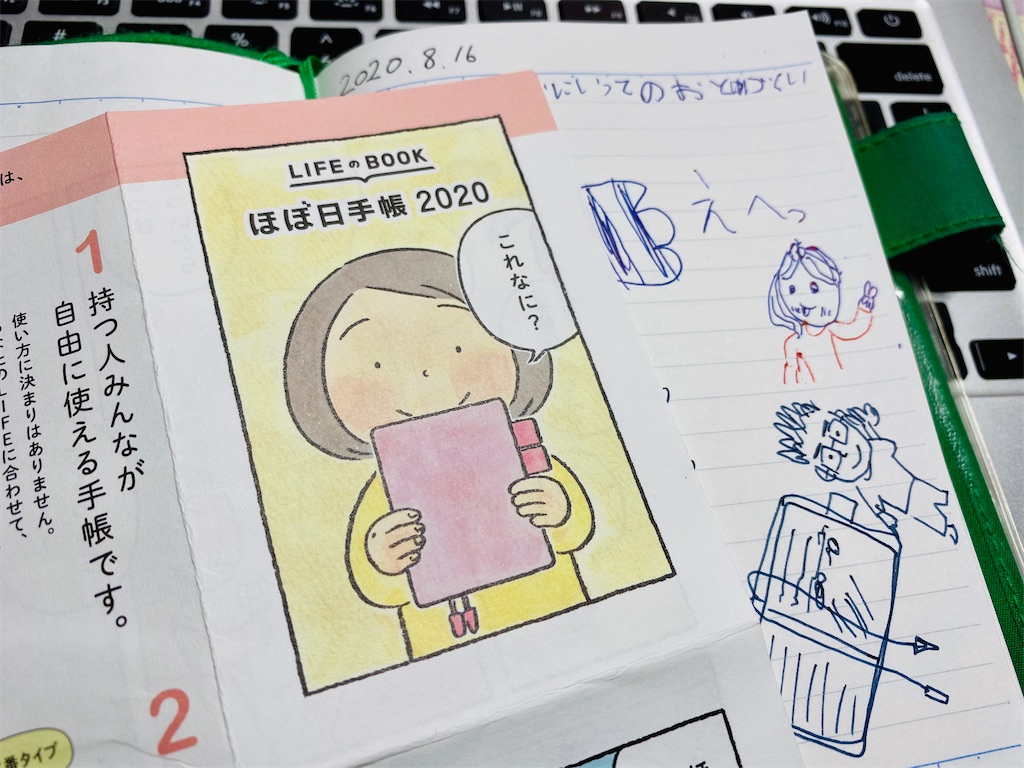 2020.8.16
にいってのおとめがてい
えへっ
LIFEのBOOK
ほぼ日手帳 2020
これなに?
は、
1
持つ人みんなが
自由に使える手帳です。
使い方に決まりはありません。
LIFEに合わせて、
2
番タイプ
#
%
^
delete
shift